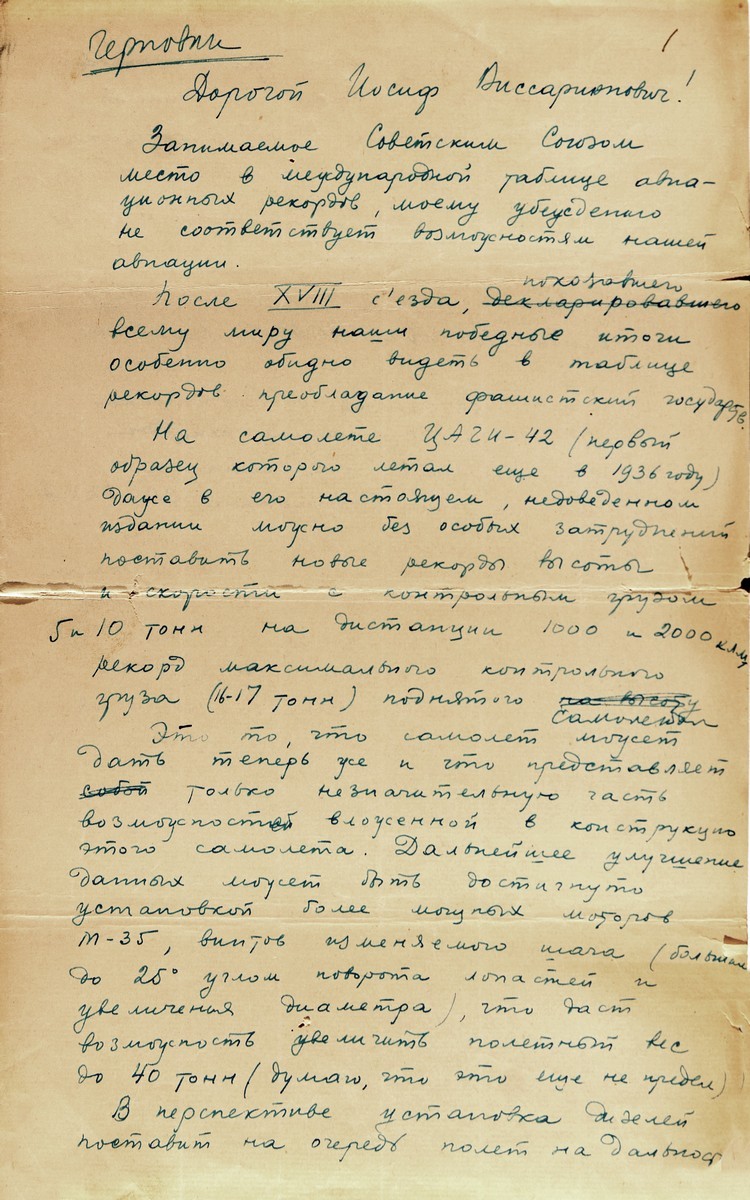 Черновик
1
Дорогой Иосиф Виссарионович!
Занимаемое Советским Союзом
место в международной таблице авиа-
ционных рекордов, моему убеждению
не соответствует возможностям нашей
авиации.
показавшего
После XVIII с'езда, декларировавшего
всему миру наши победные итоги
особенно обидно видеть в таблице
рекордов преобладание фашистский государств.
На самолете ЦАГИ-42 (первый
образец которого летал еще в 1936 году)
даже в его настоящем, недоведенном
издании можно без особых затруднений
поставить новые рекорды высоты
и скорости с контрольным грузом
5 и 10 тонн на дистанции 1000 и 2000 клм,
рекорд максимального контрольного
груза (16-17 тонн) поднятого на высоту
самолетом
Это то, что самолет может
дать теперь уже и что представляет
собой только незначительную часть
возможностей вложенной в конструкцию
этого самолета. Дальнейшее улучшение
данных может быть достигнуто
установкой более мощных моторов
М-35, винтов изменяемого шага (большим
до 25° углом поворота лопастей и
увеличения диаметра), что даст
возможность увеличить полетный вес
до 40 тонн (думаю, что это еще не предел)
В перспективе установка дизелей
поставит на очередь полет на дальност